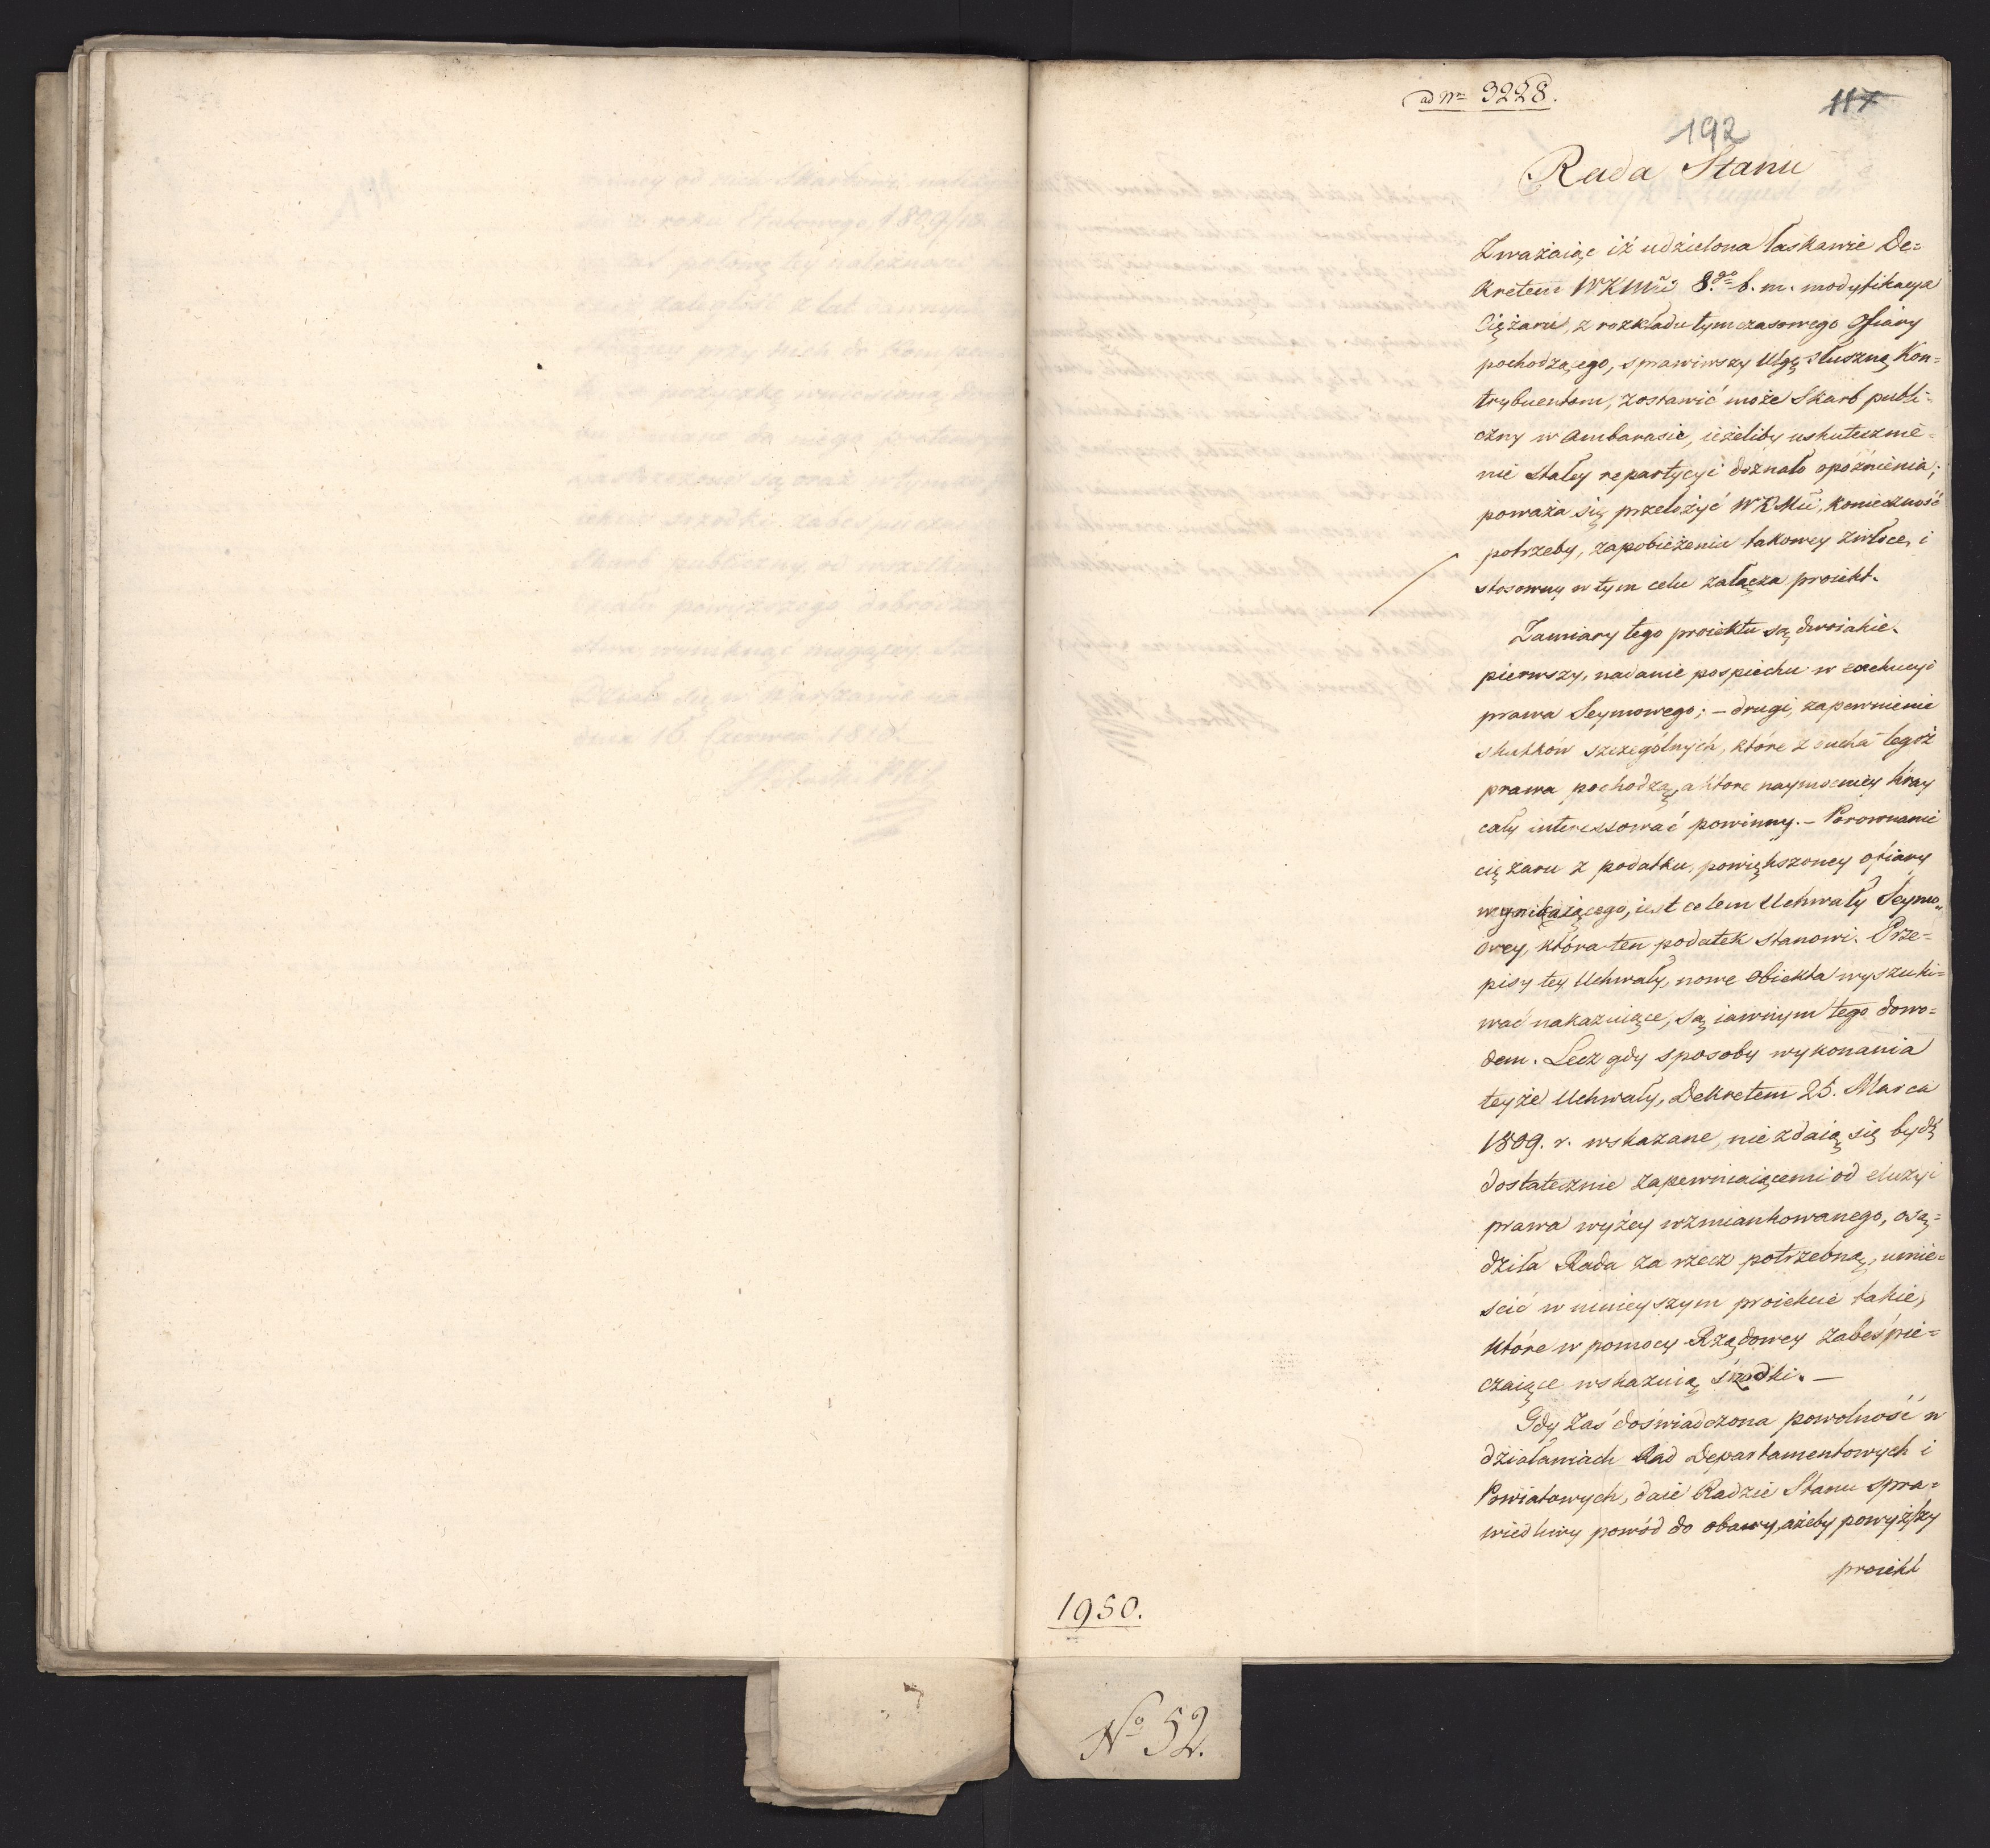 ad Nrm 3228.
117
192
Rada Stanu
Zważaiąc iż udzielona łaskawie De=
kretem WKMci 8.go b. m. modyfikacya
Ciężaru, z rozkładu tymczasowego Ofiary
pochodzącego, sprawiwszy Ulgę słuszną Kon=
trybuentom, zostawić może Skarb publi=
czny w Ambarasie, ieżeliby uskutecznie=
nie stałey repartycyi doznało opóźnienia;
poważa się przełożyć WKMci, konieczność
potrzeby, zapobieżenia takowey zwłoce, i
stosowny w tym celu załącza proiekt.
Zamiary tego proiektu są dwoiakie.
pierwszy, nadanie pospiechu w exekucyi
prawa Seymowego; – drugi, zapewnienie
skutków szczególnych, które z ducha tegoż
prawa pochodzą, a które naymocniey kray
cały interessować powinny. – Porownanie
ciężaru z podatku, powiększoney ofiary
wynikaiącego, iest celem Uchwały Seymo„
owey, która ten podatek stanowi. Prze=
pisy tey Uchwały, nowe Obiekta wyszuki=
wać nakazuiące, są iawnym tego dowo=
dem. Lecz gdy sposoby wykonania
teyże Uchwały, Dekretem 25. Marca
1809. r. wskazane, nie zdaią się bydź
dostatecznie zapewniaiącemi od eluzyi
prawa wyżey wzmiankowanego, osą=
dziła Rada za rzecz potrzebną, umie=
scić w ninieyszym proiekcie takie,
które w pomocy Rządowey zabeśpie=
czaiące wskazuią śrzodki. –
Gdy zaś doświadczona powolność w
działaniach Rad Departamentowych i
Powiatowych, daie Radzie Stanu spra=
wiedliwy powód do obawy, ażeby powyższy
proiekt
1950.
No 52.